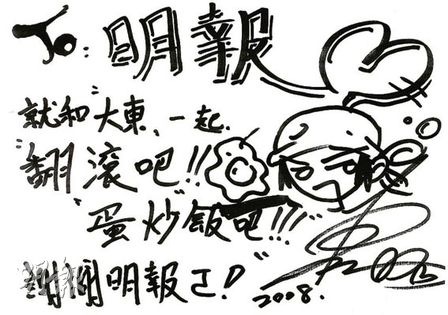 To: 明報
就和"大東"一起.
"翻滾吧!!
蛋炒飯吧!!!"
謝謝明報
2008.
明報